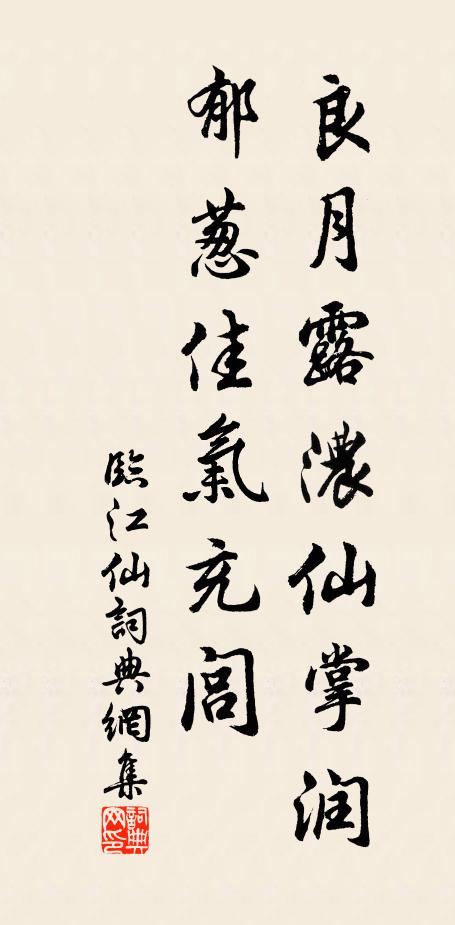 良月露濃仙掌润
郁葱佳氣充闾
臨江仙詞典網集
詞典网印